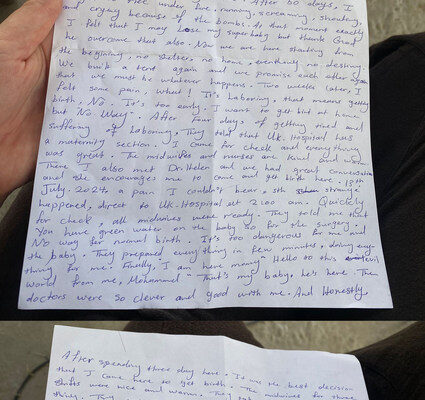 After 60 days, I
under fire, running, screaming, shouting,
and crying because of the bombs. At that moment exactly
I felt that I may lose my super baby but thank God
he overcame that also. Now we are here starting from
the beginning, no shelter, no home, everything no destiny.
We built a tent again and we promise each other again
that we must be whatever happens. Two weeks later, I
felt some pain, what! It's laboring, that means getting
birth, No. It's too early. I want to get birt at home
but No Way. After four days of getting tired and
suffering of Laboring, They told that UK. Hospital has
a maternity section. I came for check and everything
was great. The midwifes and nurses are kind and warm.
There I also met Dr. Helen and we had great conversation
and she encourages me to come and get birth here. 13th
July. 2024, a pain I couldn't bear, sth strange
happened, direct to UK. Hospital at 2:00 am. Quickly
for check, all midwives were ready. They told me that
You have green water on the baby so for the surgery.
No way for normal birth. It's too dangerous for me and
the baby. They prepared everything in few minutes, doing every
thing for me. Finally, "I am here mama" Hello to this evil
world from me, Mohammed "That's my baby, he's here. The
doctors were so clever and good with me. And Honestly,
After spending three day here. It was the best decision
that I came here to get birth. The midwives for three
shifts were nice and warm. They
thing.